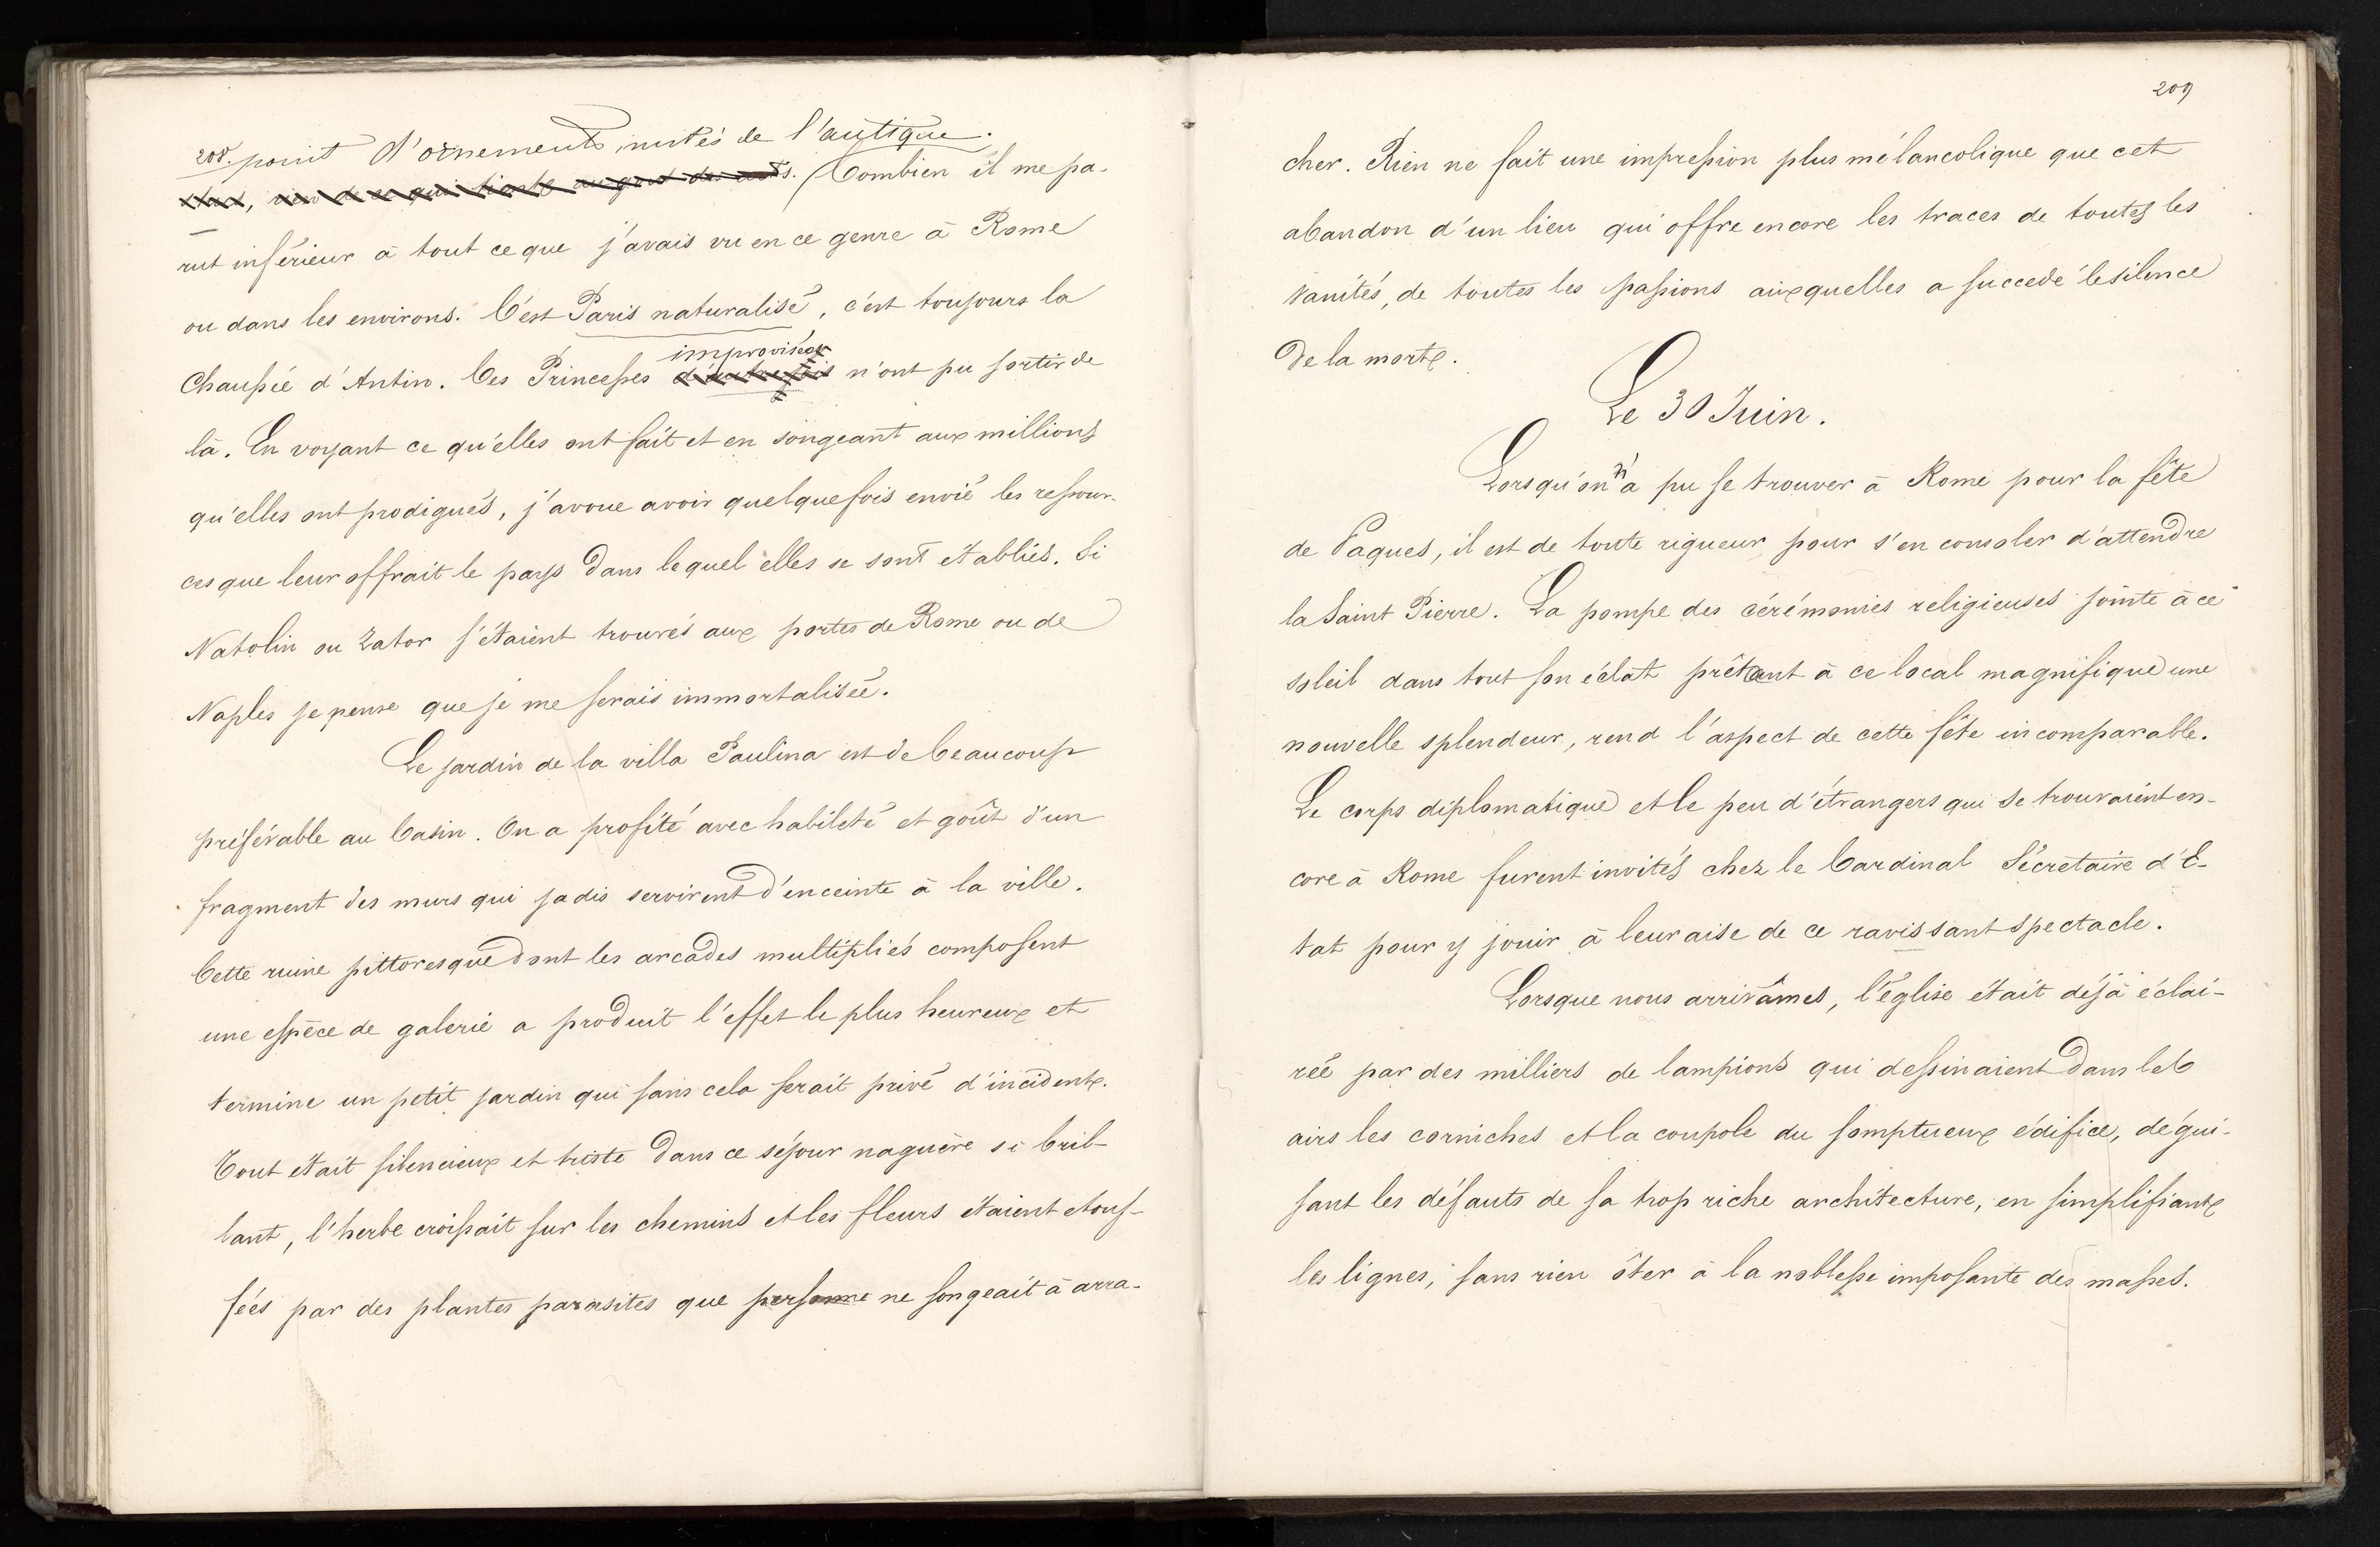 208. point d'ornements imités de l'antique.
Combien il me pa-
rut inférieur à tout ce que j'avais vu en ce genre à Rome
ou dans les environs. C'est Paris naturalisé, c'est toujours la
improvisées
Chaussée d'Antin. Ces Princesses n'ont pu sortir de
là. En voyant ce qu'elles ont fait et en songeant aux millions
qu'elles ont prodigués, j'avoue avoir quelquefois envié les ressour-
ces que leur offrait le pays dans lequel elles se sont établies. Si
Natolin ou Zator s'étaient trouvés aux portes de Rome ou de
Naples je pense que je me serais immortalisée.
Le jardin de la villa Paulina est de beaucoup
préférable au Casin. On a profité avec habileté et goût d'un
fragment des murs qui jadis servirent d'enceinte à la ville.
Cette ruine pittoresque dont les arcades multipliés composent
une espèce de galerie a produit l'effet le plus heureux et
termine un petit jardin qui sans cela serait privé d'incidents.
Tout était silencieux et triste dans ce séjour naguère si bril-
lant, l'herbe croissait sur les chemins et les fleurs étaient etouf-
fées par des plantes parasites que personne ne songeait à arra-
209
cher. Rien ne fait une impression plus mélancolique que cet
abandon d'un lieu qui offre encore les traces de toutes les
vanités, de toutes les passions auxquelles a succedé le silence
de la mort.
Le 30 Juin.
Lorsqu'on n'a pu se trouver à Rome pour la fête
de Paques, il est de toute rigueur pour s'en consoler d'attendre
la Saint Pierre. La pompe des cérémonies religieuses jointe à ce
soleil dans tout son éclat prêtant à ce local magnifique une
nouvelle splendeur, rend l'aspect de cette fête incomparable.
Le corps diplomatique et le peu d'étrangers qui se trouvaient en-
core à Rome furent invités chez le Cardinal Sécretaire d'E-
tat pour y jouir à leur aise de ce ravissant spectacle.
Lorsque nous arrivâmes, l'église était déjà éclai-
rée par des milliers de lampions qui dessinaient dans les
airs les corniches et la coupole du somptueux édifice, dégui-
sant les défauts de sa trop riche architecture, en simplifiant
les lignes, sans rien ôter à la noblesse imposante des masses.